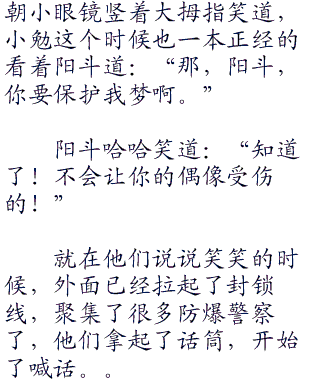 朝小眼镜竖着大拇指笑道，
小勉这个时候也一本正经的
看着阳斗道：“那，阳斗，
你要保护我梦啊。”
阳斗哈哈笑道：“知道
了！不会让你的偶像受伤
的！”
就在他们说说笑笑的时
候，外面已经拉起了封锁
线，聚集了很多防爆警察
了，他们拿起了话筒，开始
了喊话。。